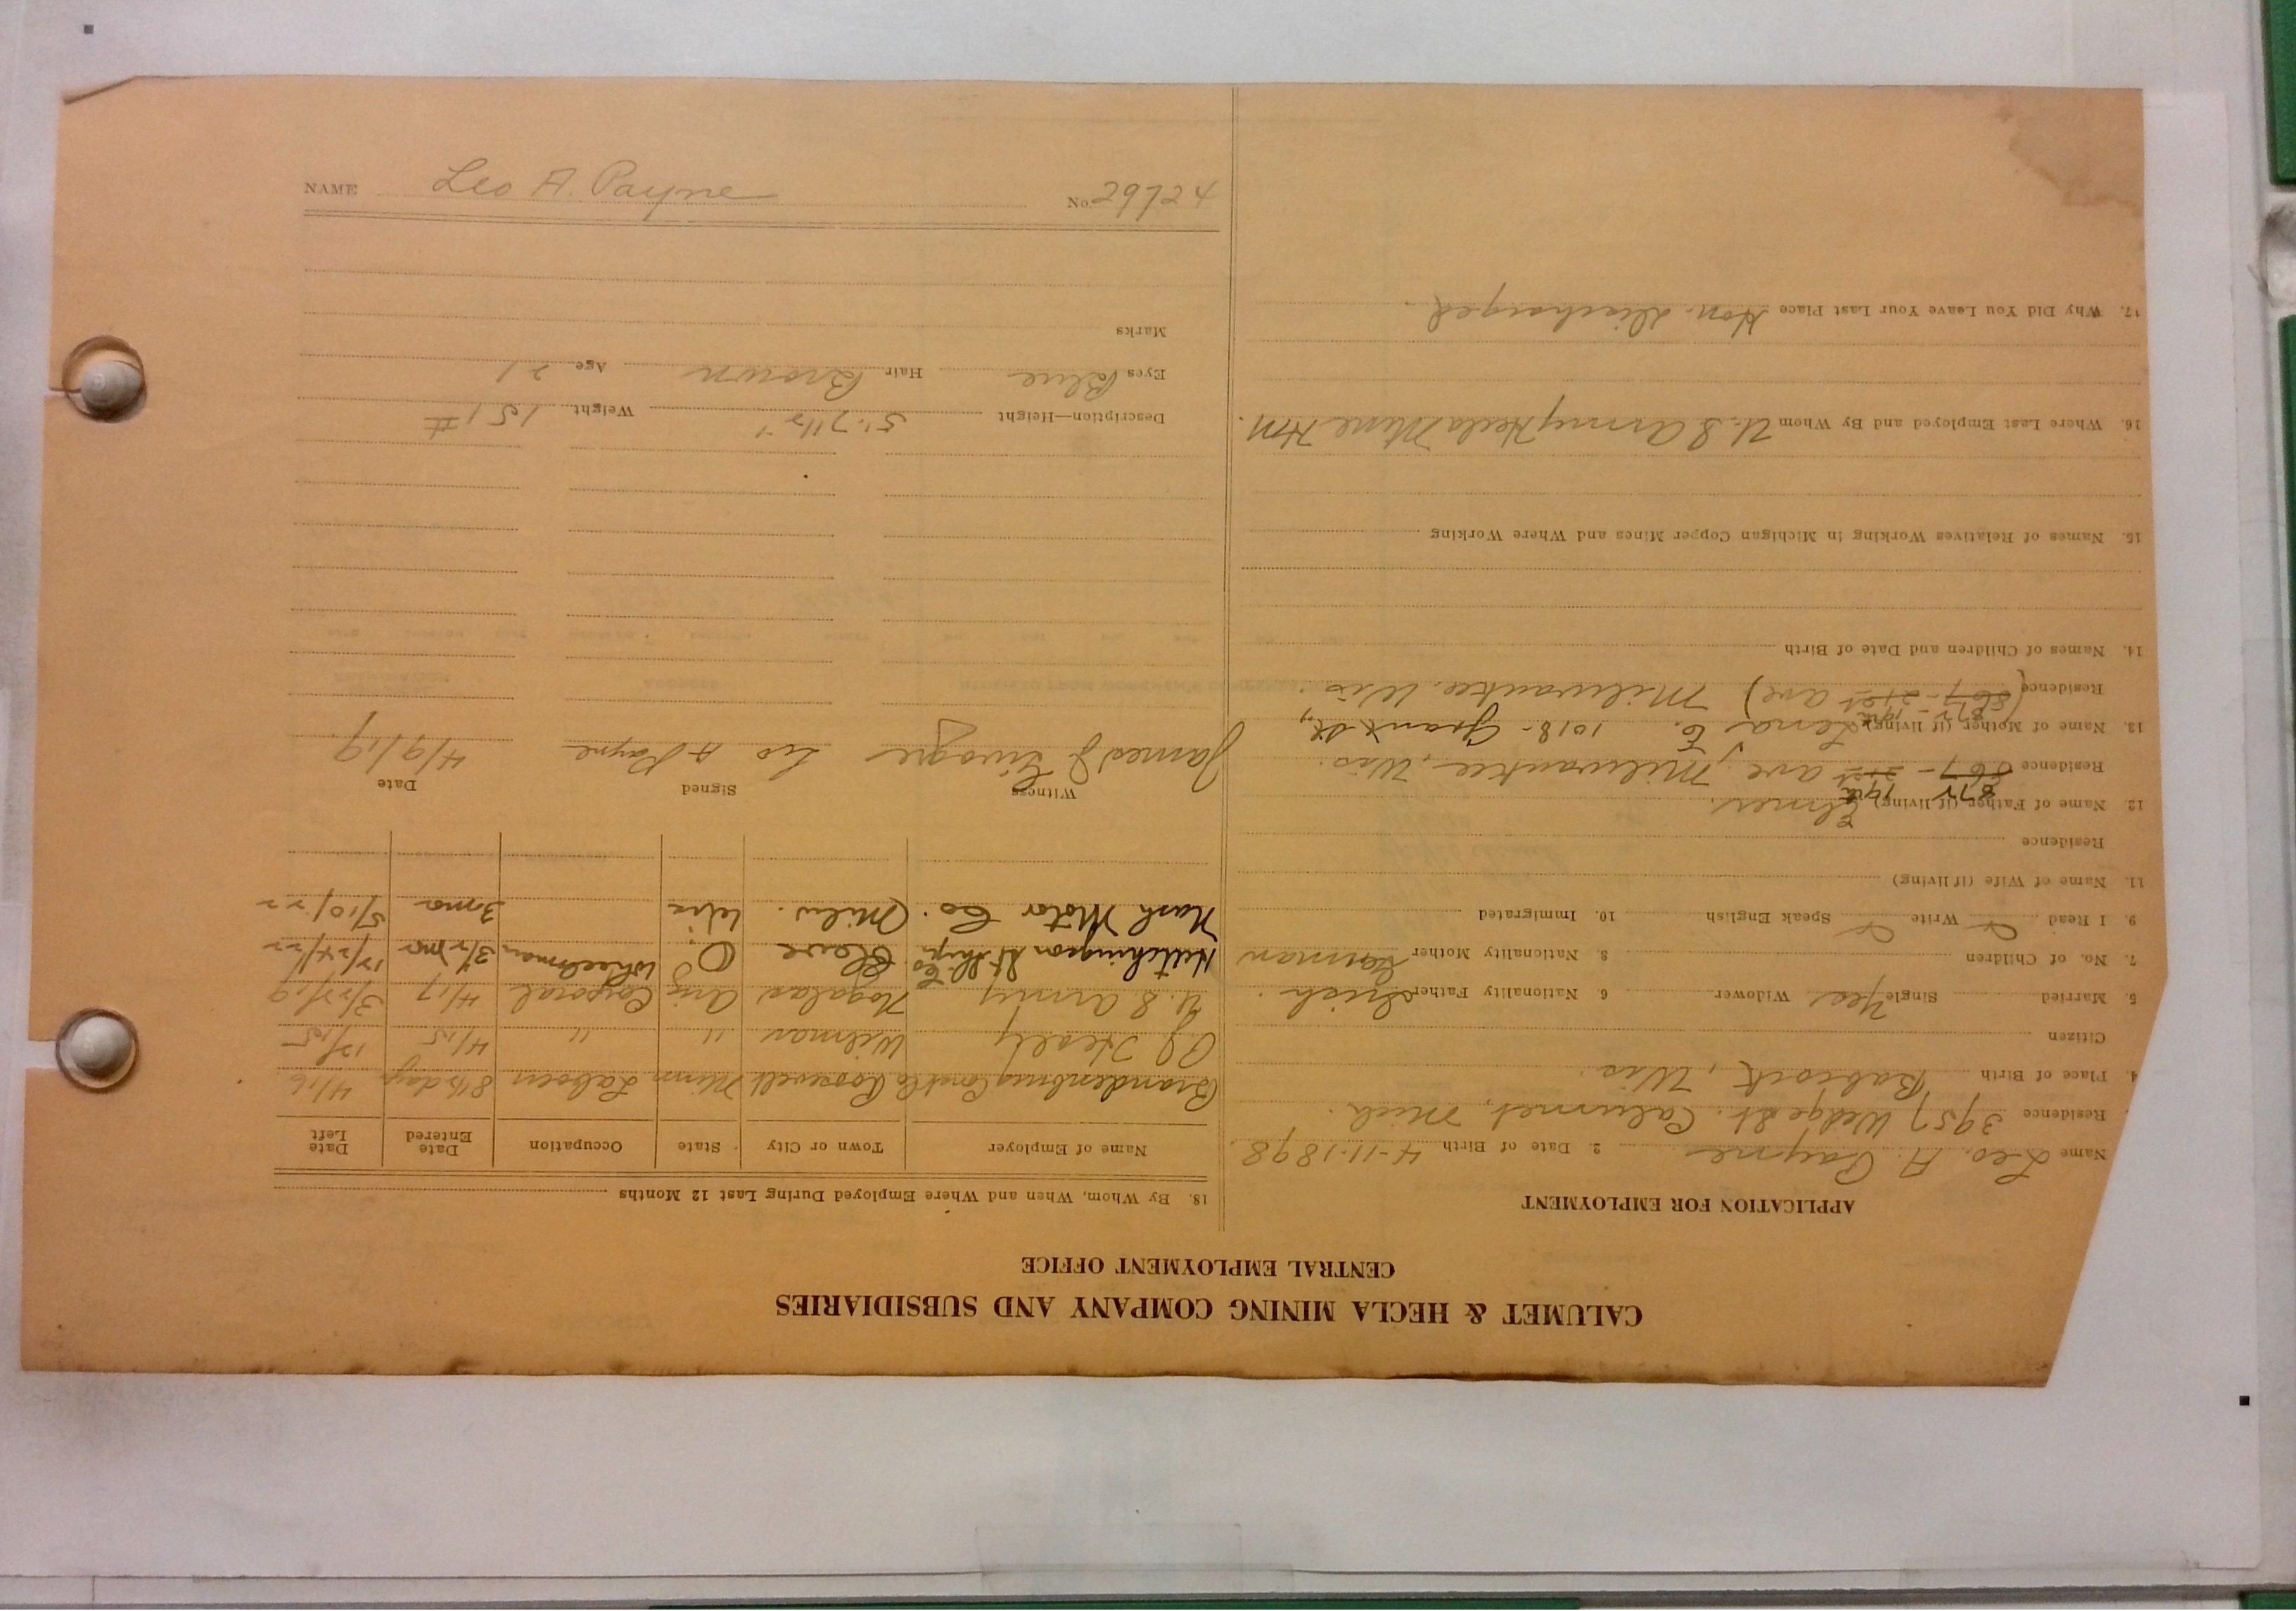 CALUMET & HECLA MINING COMPANY AND SUBSIDIARIES
CENTRAL EMPLOYMENT OFFICE
APPLICATION FOR EMPLOYMENT
Name Leo. A. Payne 2. Date of Birth 4-11-1898.
Residence 3957 Wedge St. Calumet, Mich.
4. Place of Birth Babcock, Wis.
Citizen
5. Married Single Yes Widower 6 Nationality Father Irish.
7. No. of Children 8. Nationality Mother German
9. I Read Write Speak English 10. Immigrated
11. Name of Wife (if living)
Residence
12. Name of Father (if living) Elmer.
877 19th
Residence 867 - 21st ave. Milwaukee, Wis.
13. Name of Mother (if living) Lena E. 1018 - Grant St.,
877 - 19th
Residence (867 - 21st ave) Milwaukee. Wis.
14. Names of Children and Date of Birth
15. Names of Relatives Working in Michigan Copper Mines and Where Working
16. Where Last Employed and By Whom U. S Army Hecla Mine
17. Why Did You Leave Your Last Place Hon. discharged.
18. By Whom, When and Where Employed During Last 12 Months
Name of Employer Town or City State Occupation Date Entered Date Left
Brandenburg Const Co Roosevelt Minn Laborer 8 1/2 days 4/16
Wilmar " " 4/15 12/15
U. S Army Nogalas Ariz Corporal 4/17 3/27/19
Hutchingson St. Ship. Co. Cleve O Wheelman 3 1/2 mo 12/24/22
Nash Motor Co. Milw. Wis 3 mo 5/10/22
Witness Signed Date
James J Leo A Payne 4/9/19
Description—Height 5'.7 1/2" Weight 151 #
Eyes Blue Hair Brown Age 21
Marks
NAME Leo A. Payne No. 29724